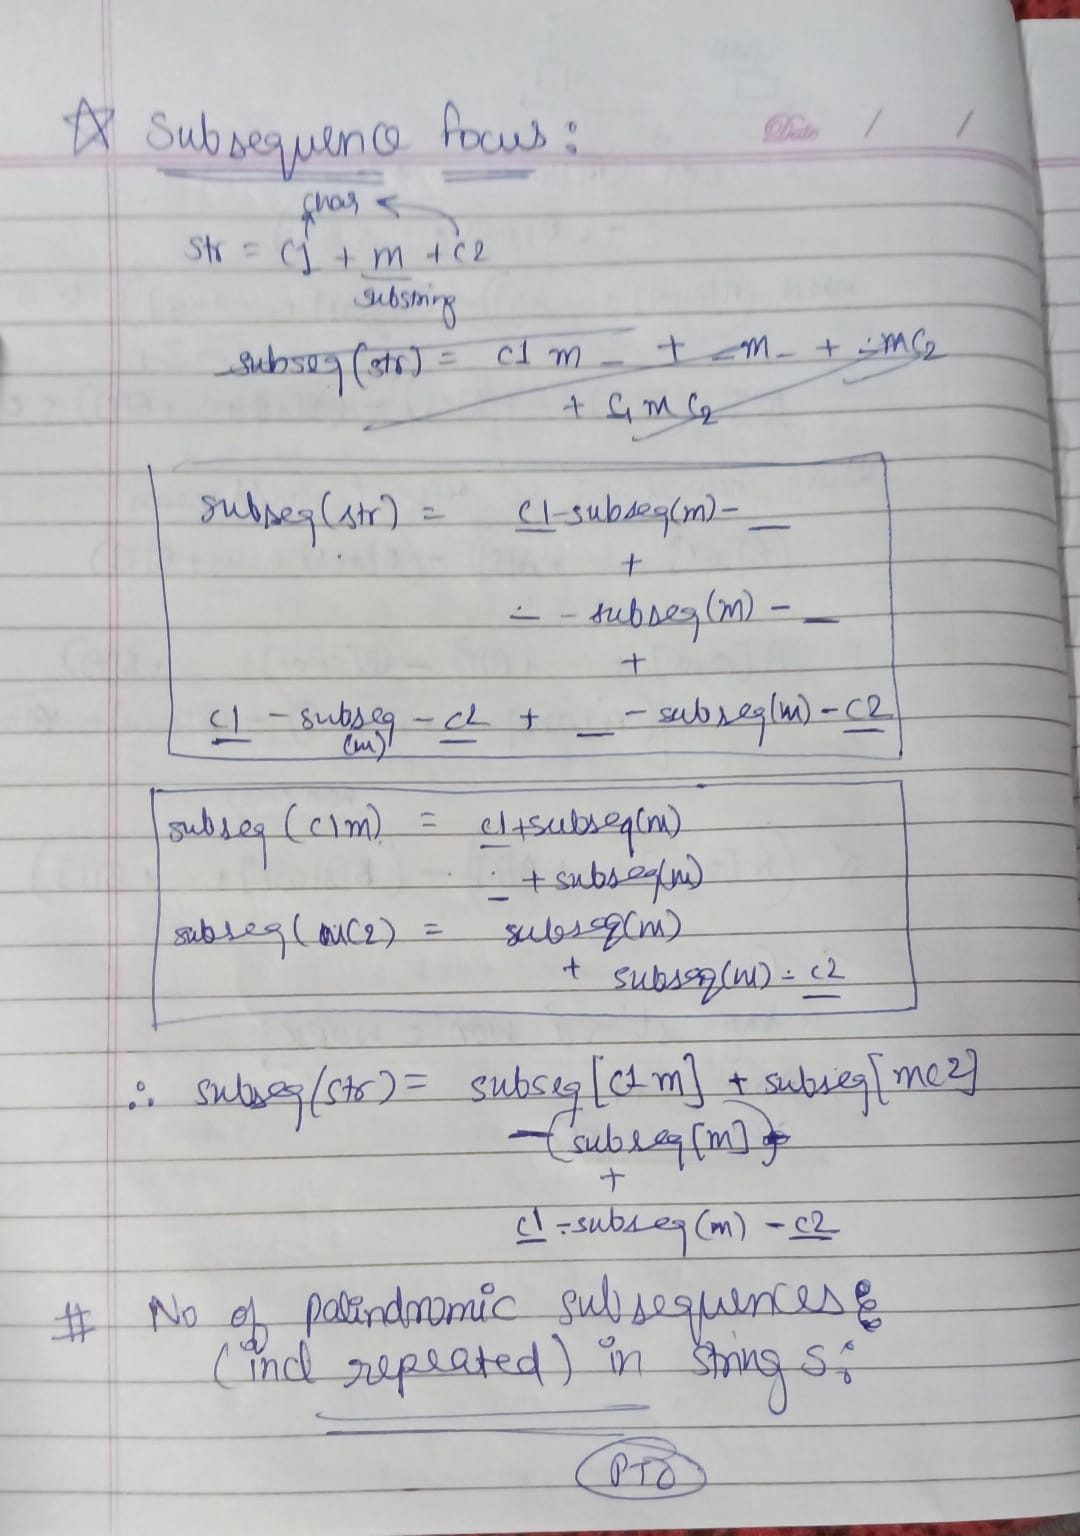 ☆ Subsequence focus:
Date / /
char
str = c1 + m + c2
substring
subseq(str) = c1 m _ + _ m _ + _ m c2
+ c1 m c2
subseq(str) = c1 - subseq(m) - _
+
_ - subseq(m) - _
+
c1 - subseq(m) - c2 + _ - subseq(m) - c2
subseq (c1m) = c1 + subseq(m)
_ + subseq(m)
subseq (mc2) = subseq(m)
+ subseq(m) - c2
∴ subseq(str) = subseq[c1m] + subseq[mc2]
- (subseq[m])
+
c1 - subseq(m) - c2
# No of palindromic subsequences
(incl repeated) in string s:
PTO